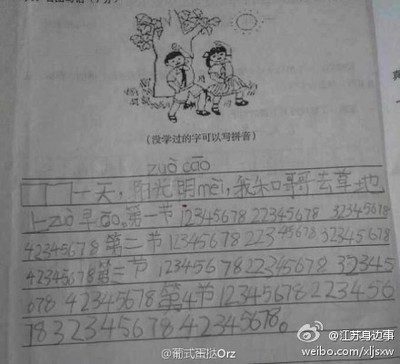 (没学过的字可以写拼音)
zuò cāo
一天，阳光明mèi，我和哥哥去草地
上zuò早āo。第一节12345678 22345678 32345678
42345678第二节12345678 22345678 32345678
42345678第三节12345678 22345678 32345
678 42345678第4节12345678 223456
78 32345678 42345678。
@葡式蛋挞Orz
@江苏身边事
weibo.com/xljsxw